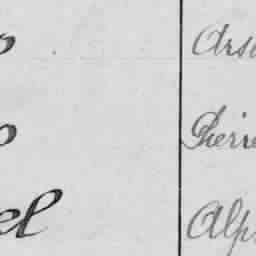 o Arsè
o Pierre
el Alp